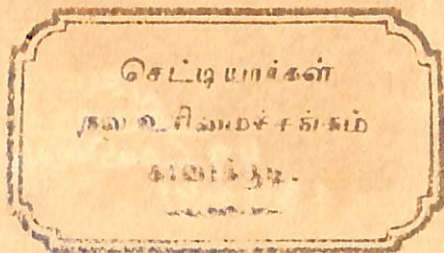 செட்டியார்கள்
நல உரிமைச்சங்கம்
காரைக்குடி.